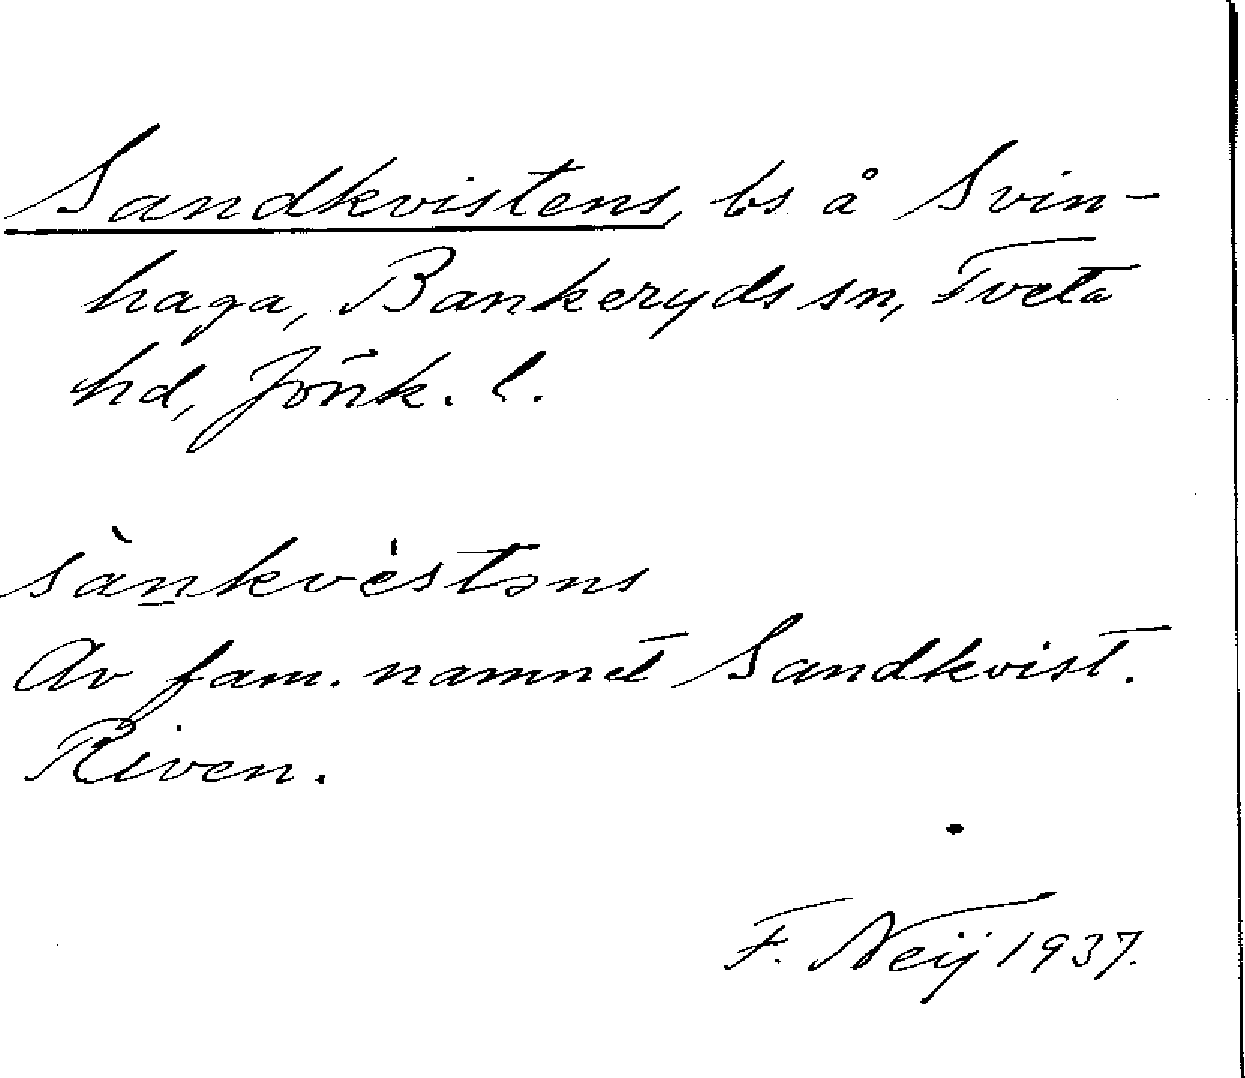 Sandkvistens, bs å Svin-
haga, Bankeryds sn, Tveta
hd, Jönk. l.
sàn̲kvèstəns
Av fam. namnet Sandkvist.
Riven.
F. Neij 1937.